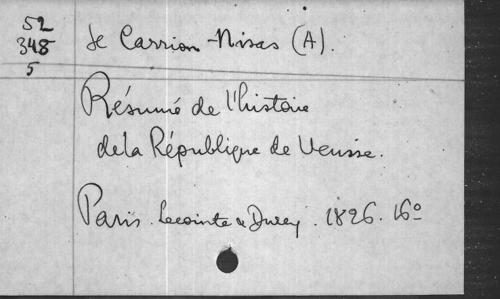 52
348
5
de Carrion-Nisas (A).
Résumé de l'histoire
de la République de Venise.
Paris. Lecointe & Durey. 1826. 16º